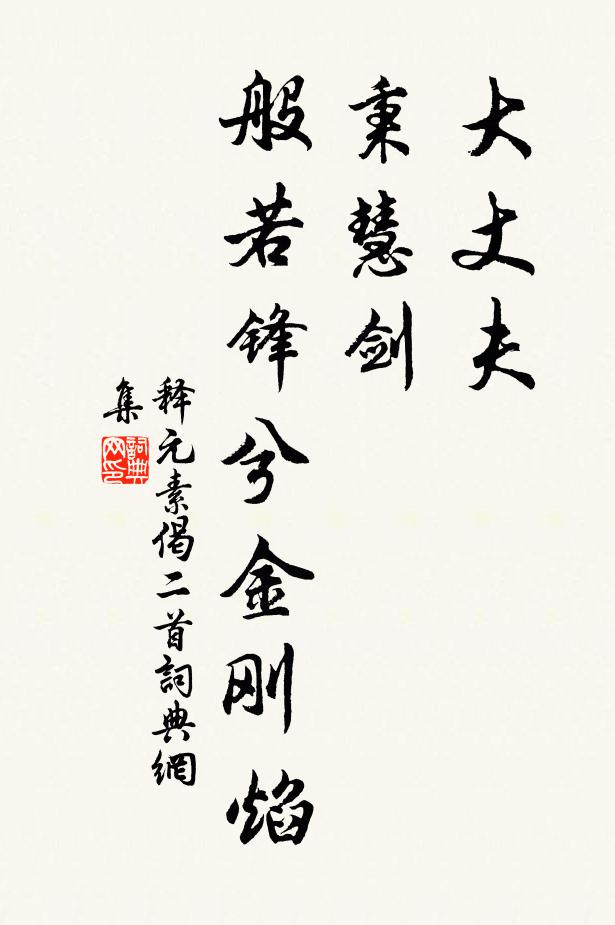 大丈夫
秉慧剑
般若锋兮金刚焰
释元素偈二首詞典網
集
詞典
网印